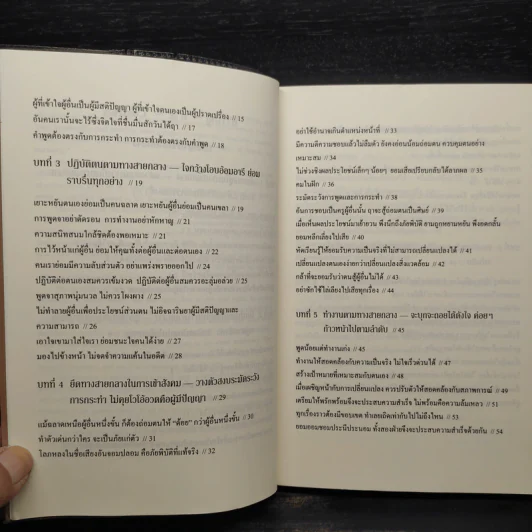 ผู้ที่เข้าใจผู้อื่นเป็นผู้มีสติปัญญา ผู้ที่เข้าใจตนเองเป็นผู้ปราดเปรื่อง // 15
อันคนเรานั้นจะไร้ซึ่งจิตใจที่ชื่นมื่นสักวันได้ฤา // 17
คำพูดต้องตรงกับการกระทำ การกระทำต้องตรงกับคำพูด // 18
บทที่ 3 ปฏิบัติตนตามทางสายกลาง — ใจกว้างโอบอ้อมอารี ย่อม
ราบรื่นทุกอย่าง // 19
เยาะหยันตนเองย่อมเป็นคนฉลาด เยาะหยันผู้อื่นย่อมเป็นคนเขลา // 20
การพูดจาอย่าตัดรอน การทำงานอย่าหักหาญ // 21
ความสนิทสนมใกล้ชิดต้องพอเหมาะ // 21
การไว้หน้าแก่ผู้อื่น ย่อมให้คุณทั้งต่อผู้อื่นและต่อตนเอง // 22
คนเราย่อมมีความลับส่วนตัว อย่าแพร่งพรายออกไป // 24
ปฏิบัติต่อตนเองสมควรเข้มงวด ปฏิบัติต่อผู้อื่นสมควรอะลุ่มอล่วย // 25
พูดจาสุภาพนุ่มนวล ไม่ควรโผงผาง // 25
ไม่ทำลายผู้อื่นเพื่อประโยชน์ส่วนตน ไม่อิจฉาริษยาผู้มีสติปัญญาและ
ความสามารถ // 26
เอาใจเขามาใส่ใจเรา ย่อมชนะใจคนได้ง่าย // 27
มองไปข้างหน้า ไม่จดจำความแค้นในอดีต // 28
บทที่ 4 ยึดทางสายกลางในการเข้าสังคม — วางตัวสงบระมัดระวัง
การกระทำ ไม่คุยโวโอ้อวดคือผู้มีปัญญา // 29
แม้ฉลาดเหนือผู้อื่นหนึ่งขั้น ก็ต้องย่อมตนให้ “ด้อย” กว่าผู้อื่นหนึ่งขั้น // 30
ทำตัวเด่นกว่าใคร จะเป็นภัยแก่ตัว // 31
โลภหลงในชื่อเสียงอันจอมปลอม คือภัยพิบัติที่แท้จริง // 32
อย่าใช้อำนาจเกินตำแหน่งหน้าที่ // 33
มีความดีความชอบแล้วไม่ลืมตัว ยังคงอ่อนน้อมถ่อมตน ควบคุมตนอย่าง
เหมาะสม // 34
ไม่ช่วงชิงผลประโยชน์เล็กๆ น้อยๆ ยอมเสียเปรียบกลับได้ลาภผล // 34
คมในฝัก // 35
ระมัดระวังการพูดและการกระทำ // 38
อันการชอบเป็นครูผู้อื่นนั้น ฤาจะสู้ถ่อมตนเป็นศิษย์ // 39
เมื่อเห็นผลประโยชน์มาเย้ายวน พึงนึกถึงภัยพิบัติ ยามถูกหยามหยัน พึงอดกลั้น
ยอมหลีกเลี่ยงไปเสีย // 40
หัดเรียนรู้ให้ยอมรับความเป็นจริงที่ไม่สามารถเปลี่ยนแปลงได้ // 41
เปลี่ยนแปลงตนเองง่ายกว่าเปลี่ยนแปลงสิ่งแวดล้อม // 42
กล้าที่จะยอมรับว่าตนสู้ผู้อื่นไม่ได้ // 43
อย่าชักใช้ไล่เลียงไปเสียทุกเรื่อง // 44
บทที่ 5 ทำงานตามทางสายกลาง — จะบุกจะถอยได้ดังใจ ค่อยๆ
ก้าวหน้าไปตามลำดับ // 45
พูดน้อยแต่ทำงานเก่ง // 45
ทำงานให้สอดคล้องกับความเป็นจริง ไม่ใจเร็วด่วนได้ // 47
สร้างเป้าหมายที่เหมาะสมกับตนเอง // 48
เมื่อเผชิญหน้ากับการเปลี่ยนแปลง ควรปรับตัวให้สอดคล้องกับสภาพการณ์ // 49
เตรียมให้พรักพร้อมจึงจะประสบความสำเร็จ ไม่พร้อมคือความล้มเหลว // 50
ทุกเรื่องราวต้องมีขอบเขต ทำเลยเถิดเท่ากับไปไม่ถึงไหน // 53
ยอมออมชอมประนีประนอม ทั้งสองฝ่ายจึงจะประสบความสำเร็จด้วยกัน // 54